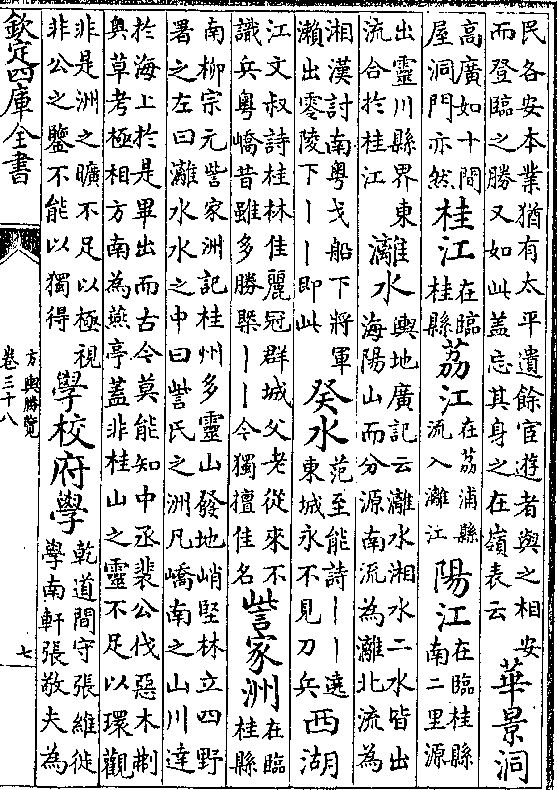 民各安本業猶有太平遺餘宦遊者與之相安
而登臨之勝又如此蓋忘其身之在嶺表云
華景洞
高廣如十間
屋洞門亦然
桂江
在臨
桂縣
荔江
在荔浦縣
流入灕江
陽江
在臨桂縣
南二里源
出靈川縣界東
流合於桂江
灕水
輿地廣記云灕水湘水二水皆出
海陽山而分源南流為灕北流為
湘漢討南粤戈船下將軍
瀨出零陵下丨丨即此
癸水
范至能詩丨丨遶
東城永不見刀兵
西湖
江文叔詩桂林佳麗冠群城父老從來不
識兵粤嶠昔雖多勝槩丨丨今獨擅佳名
訾家洲
在臨
桂縣
南柳宗元訾家洲記桂州多靈山發地峭堅林立四野
署之左曰灕水水之中曰訾氏之洲凡嶠南之山川達
於海上於是畢出而古今莫能知中丞裴公伐惡木刜
奥草考極相方南為燕亭蓋非桂山之靈不足以環觀
非是洲之曠不足以極視
非公之鑒不能以獨得
學校府學
乾道間守張維徙
學南軒張敬夫為
欽定四庫全書
方輿勝覽
卷三十八
七